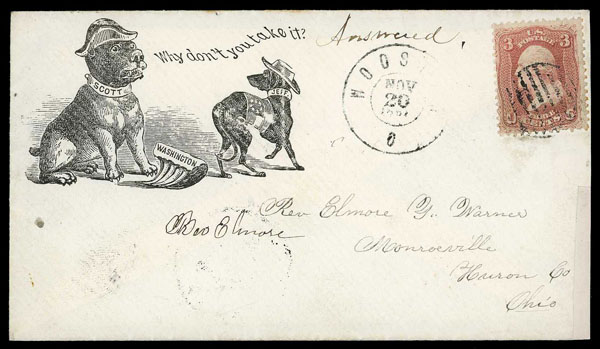 Why don't you take it?
Answered,
SCOTT
JEFF.
WASHINGTON
WOOS
NOV
20
O
3 U.S. 3
POSTAGE
Rev Elmore Y. Warner
Rev Elmore
Monroeville
Huron Co
Ohio